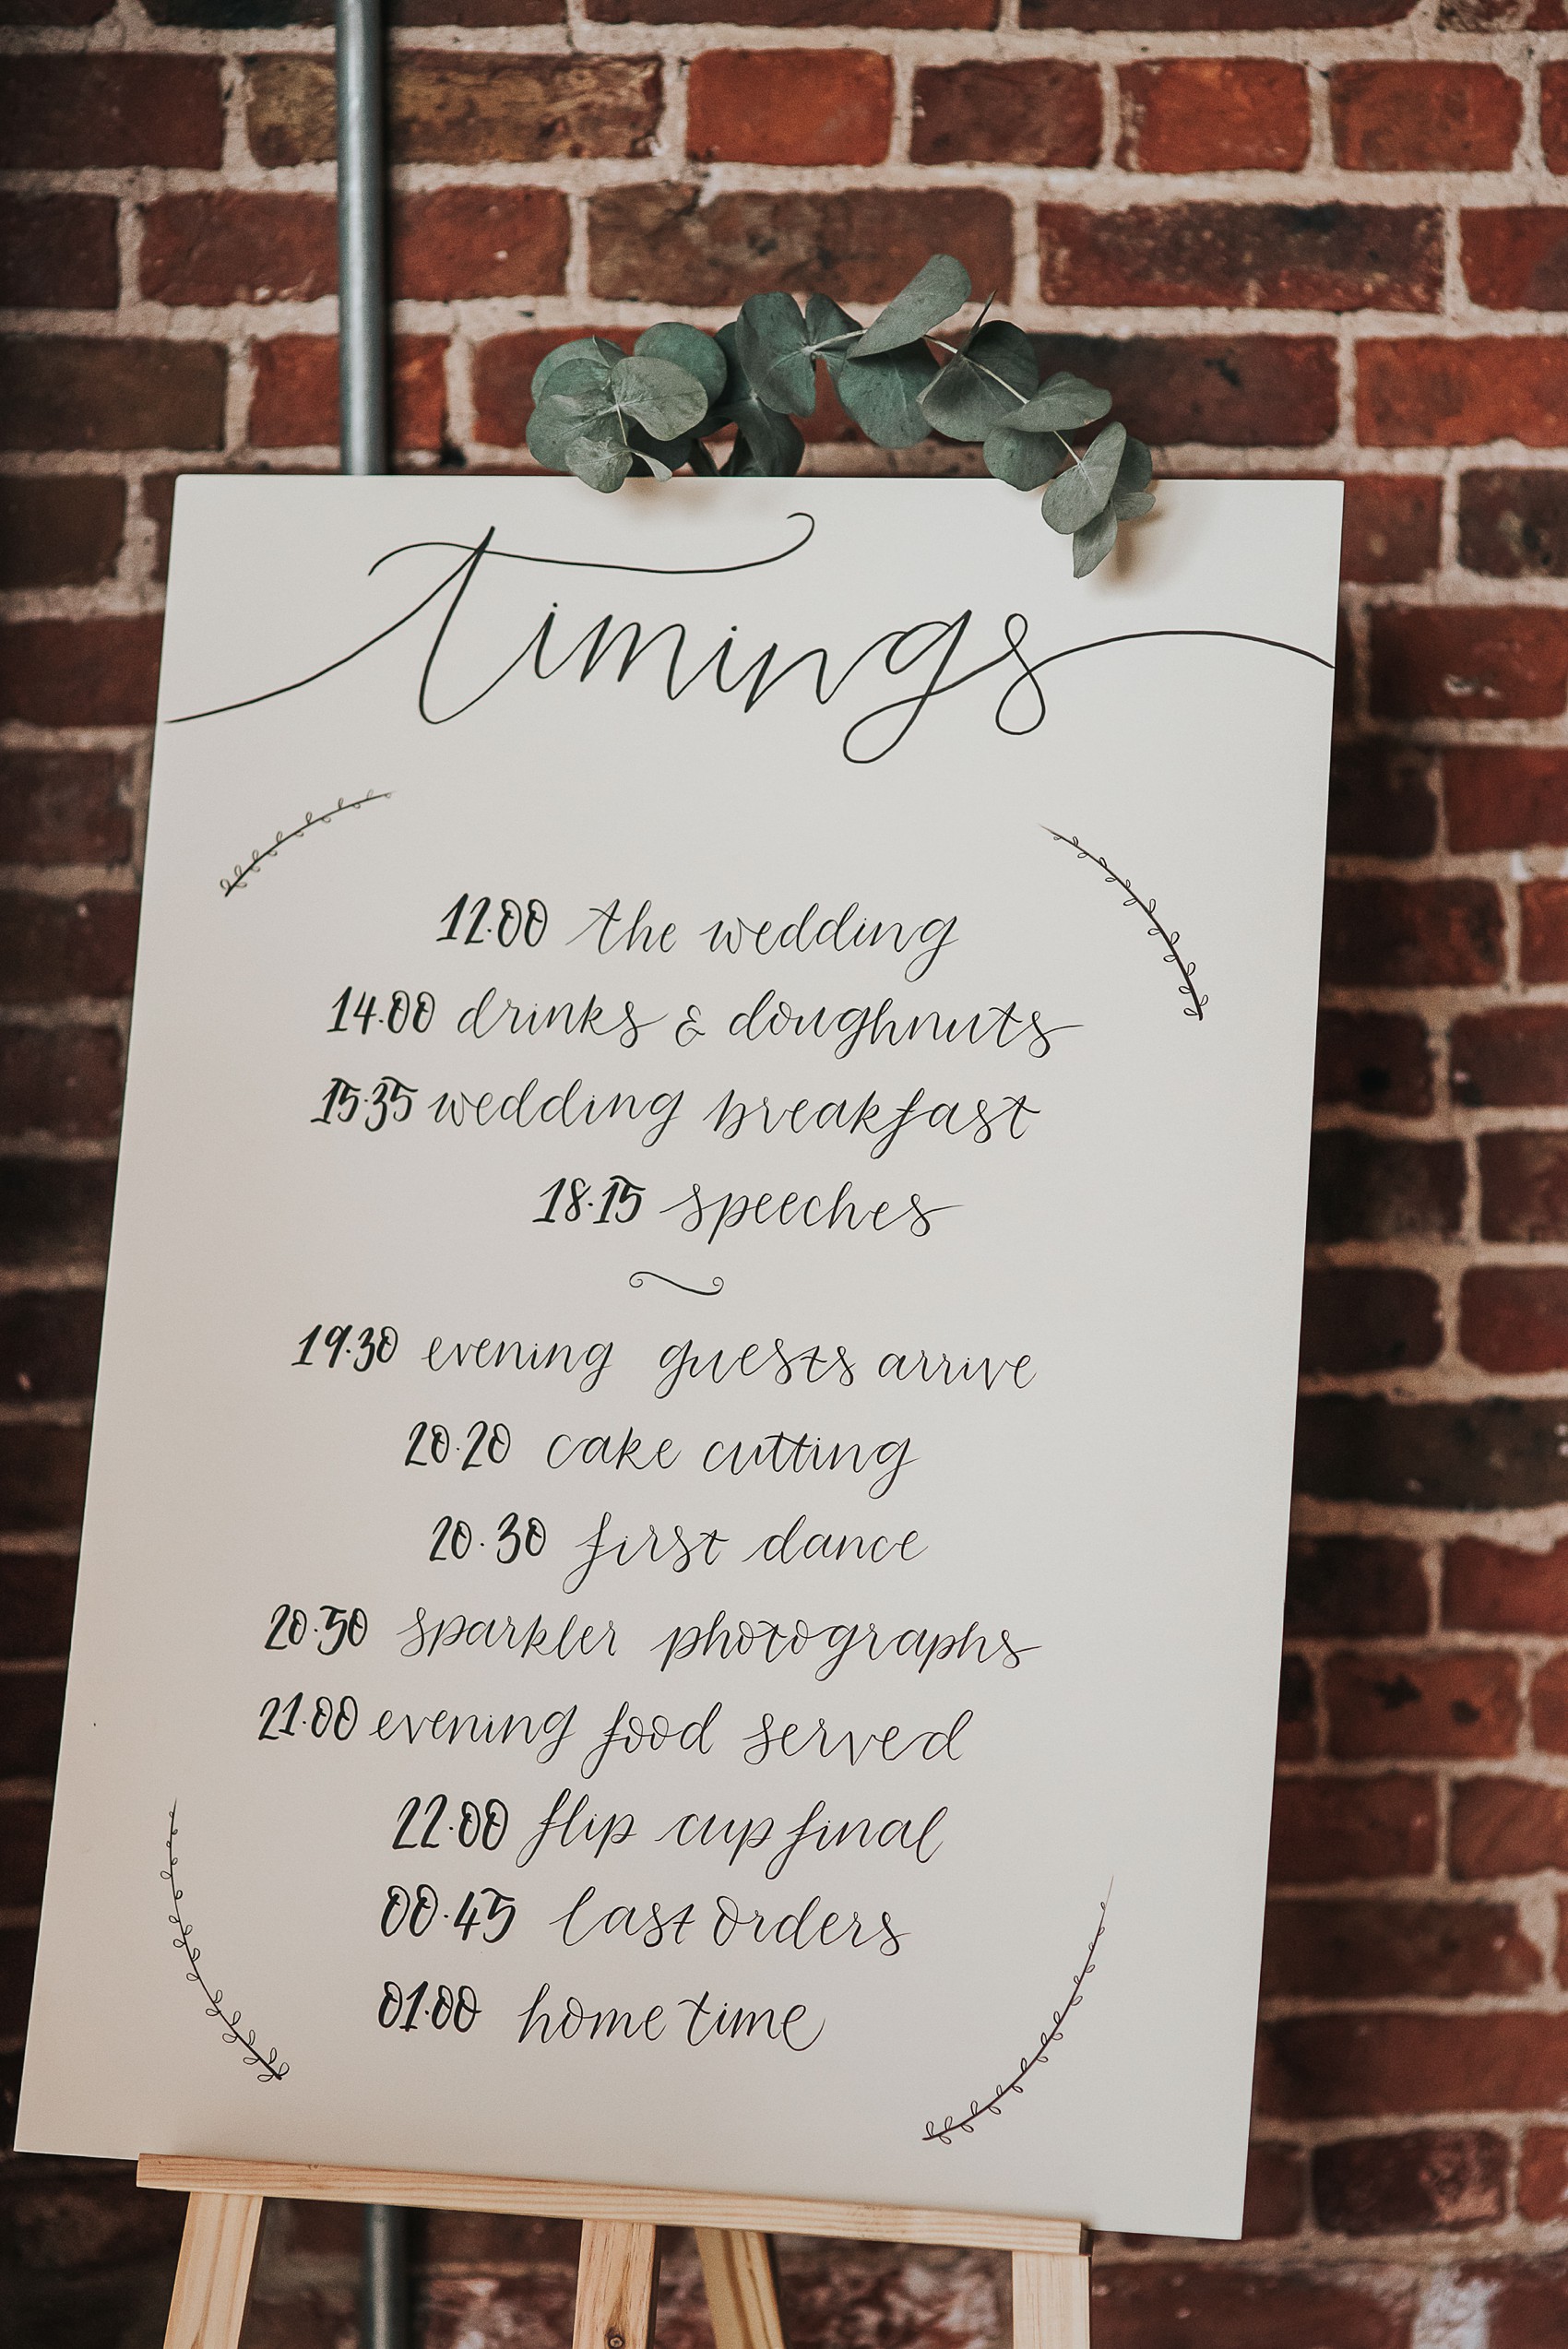 timings
12.00 the wedding
14.00 drinks & doughnuts
15.35 wedding breakfast
18.15 speeches
19.30 evening guests arrive
20.20 cake cutting
20.30 first dance
20.50 sparkler photographs
21.00 evening food served
22.00 flip cup final
00.45 last orders
01.00 home time